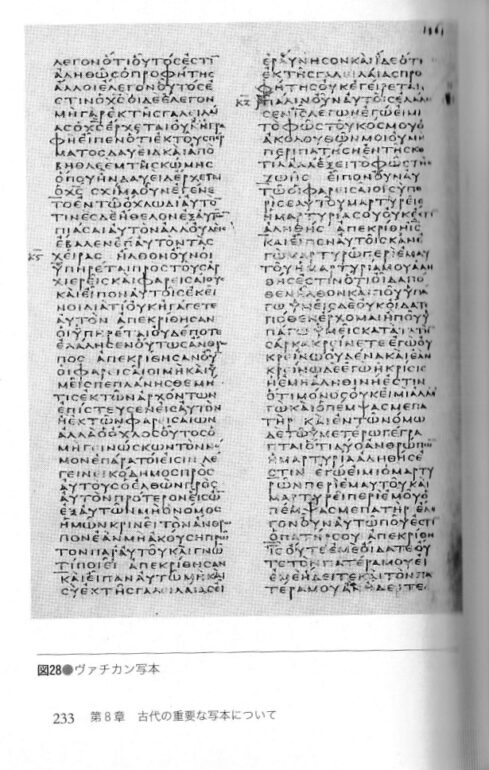 1361
ΛΕΓΟΝΟΤΙΟΥΤΟϹΕϹΤΙ
ΑΛΗΘΩϹΟΠΡΟΦΗΤΗϹ
ΑΛΛΟΙΕΛΕΓΟΝΟΥΤΟϹΕ
ϹΤΙΝΟΧϹΟΙΔΕΕΛΕΓΟΝ
ΜΗΓΑΡΕΚΤΗϹΓΑΛΕΙΛΑΙ
ΑϹΟΧϹΕΡΧΕΤΑΙΟΥΧΗΓΡΑ
ΦΗΕΙΠΕΝΟΤΙΕΚΤΟΥϹΠΕΡ
ΜΑΤΟϹΔΑΥΕΙΔΚΑΙΑΠΟ
ΒΗΘΛΕΕΜΤΗϹΚΩΜΗϹ
ΟΠΟΥΗΝΔΑΥΕΙΔΕΡΧΕΤΑΙ
ΟΧϹ ϹΧΙϹΜΑΟΥΝΕΓΕΝΕ
ΤΟΕΝΤΩΟΧΛΩΔΙΑΥΤΟ
ΤΙΝΕϹΔΕΗΘΕΛΟΝΕΞΑΥΤΩ
ΠΙΑϹΑΙΑΥΤΟΝΑΛΛΟΥΔΕΙϹ
ΕΒΑΛΕΝΕΠΑΥΤΟΝΤΑϹ
ΧΕΙΡΑϹ ΗΛΘΟΝΟΥΝΟΙ
ΥΠΗΡΕΤΑΙΠΡΟϹΤΟΥϹΑΡ
ΧΙΕΡΕΙϹΚΑΙΦΑΡΕΙϹΑΙΟΥϹ
ΚΑΙΕΙΠΟΝΑΥΤΟΙϹΕΚΕΙ
ΝΟΙΔΙΑΤΙΟΥΚΗΓΑΓΕΤΕ
ΑΥΤΟΝ ΑΠΕΚΡΙΘΗϹΑΝ
ΟΙΥΠΗΡΕΤΑΙΟΥΔΕΠΟΤΕ
ΕΛΑΛΗϹΕΝΟΥΤΩϹΑΝΘΡΩ
ΠΟϹ ΑΠΕΚΡΙΘΗϹΑΝΟΥ
ΟΙΦΑΡΕΙϹΑΙΟΙΜΗΚΑΙΥ
ΜΕΙϹΠΕΠΛΑΝΗϹΘΕΜΗ
ΤΙϹΕΚΤΩΝΑΡΧΟΝΤΩΝ
ΕΠΙϹΤΕΥϹΕΝΕΙϹΑΥΤΟΝ
ΗΕΚΤΩΝΦΑΡΕΙϹΑΙΩΝ
ΑΛΛΑΟΟΧΛΟϹΟΥΤΟϹΟ
ΜΗΓΕΙΝΩϹΚΩΝΤΟΝΝΟ
ΜΟΝΕΠΑΡΑΤΟΙΕΙϹΙΝ ΛΕ
ΓΕΙΝΕΙΚΟΔΗΜΟϹΠΡΟϹ
ΑΥΤΟΥϹΟΕΛΘΩΝΠΡΟϹ
ΑΥΤΟΝΠΡΟΤΕΡΟΝΕΙϹΩ
ΕΞΑΥΤΩΝΜΗΟΝΟΜΟϹ
ΗΜΩΝΚΡΙΝΕΙΤΟΝΑΝΘΡΩ
ΠΟΝΕΑΝΜΗΑΚΟΥϹΗΠΡΩ
ΤΟΝΠΑΡΑΥΤΟΥΚΑΙΓΝΩ
ΤΙΠΟΙΕΙ ΑΠΕΚΡΙΘΗϹΑΝ
ΚΑΙΕΙΠΑΝΑΥΤΩΜΗΚΑΙ
ϹΥΕΚΤΗϹΓΑΛΕΙΛΑΙΑϹΕΙ
ΕΡΑΥΝΗϹΟΝΚΑΙΙΔΕΟΤΙ
ΕΚΤΗϹΓΑΛΕΙΛΑΙΑϹΠΡΟ
ΦΗΤΗϹΟΥΚΕΓΕΙΡΕΤΑΙ
ΠΑΛΙΝΟΥΝΑΥΤΟΙϹΕΛΑΛΗ
ϹΕΝΙϹΛΕΓΩΝΕΓΩΕΙΜΙ
ΤΟΦΩϹΤΟΥΚΟϹΜΟΥΟ
ΑΚΟΛΟΥΘΩΝΜΟΙΟΥΜΗ
ΠΕΡΙΠΑΤΗϹΗΕΝΤΗϹΚΟ
ΤΙΑΑΛΛΕΞΕΙΤΟΦΩϹΤΗϹ
ΖΩΗϹ ΕΙΠΟΝΟΥΝΑΥ
ΤΩΟΙΦΑΡΕΙϹΑΙΟΙϹΥΠΕ
ΡΙϹΕΑΥΤΟΥΜΑΡΤΥΡΕΙϹ
ΗΜΑΡΤΥΡΙΑϹΟΥΟΥΚΕϹΤΙ
ΑΛΗΘΗϹ ΑΠΕΚΡΙΘΗΙϹ
ΚΑΙΕΙΠΕΝΑΥΤΟΙϹΚΑΝΕ
ΓΩΜΑΡΤΥΡΩΠΕΡΙΕΜΑΥ
ΤΟΥΗΜΑΡΤΥΡΙΑΜΟΥΑΛΗ
ΘΗϹΕϹΤΙΝΟΤΙΟΙΔΑΠΟ
ΘΕΝΗΛΘΟΝΚΑΙΠΟΥΥΠΑ
ΓΩΥΜΕΙϹΔΕΟΥΚΟΙΔΑΤΕ
ΠΟΘΕΝΕΡΧΟΜΑΙΗΠΟΥΥ
ΠΑΓΩ ΥΜΕΙϹΚΑΤΑΤΗΝ
ϹΑΡΚΑΚΡΕΙΝΕΤΕΕΓΩΟΥ
ΚΡΕΙΝΩΟΥΔΕΝΑΚΑΙΕΑΝ
ΚΡΕΙΝΩΔΕΕΓΩΗΚΡΙϹΙϹ
ΗΕΜΗΑΛΗΘΙΝΗΕϹΤΙΝ
ΟΤΙΜΟΝΟϹΟΥΚΕΙΜΙΑΛΛΕ
ΓΩΚΑΙΟΠΕΜΨΑϹΜΕΠΑ
ΤΗΡ ΚΑΙΕΝΤΩΝΟΜΩ
ΔΕΤΩΥΜΕΤΕΡΩΓΕΓΡΑ
ΠΤΑΙΟΤΙΔΥΟΑΝΘΡΩΠΩ
ΗΜΑΡΤΥΡΙΑΑΛΗΘΗϹΕ
ϹΤΙΝ ΕΓΩΕΙΜΙΟΜΑΡΤΥ
ΡΩΝΠΕΡΙΕΜΑΥΤΟΥΚΑΙ
ΜΑΡΤΥΡΕΙΠΕΡΙΕΜΟΥΟ
ΠΕΜΨΑϹΜΕΠΑΤΗΡ ΕΛΕ
ΓΟΝΟΥΝΑΥΤΩΠΟΥΕϹΤΙ
ΟΠΑΤΗΡϹΟΥ ΑΠΕΚΡΙΘΗ
ΙϹΟΥΤΕΕΜΕΟΙΔΑΤΕΟΥ
ΤΕΤΟΝΠΑΤΕΡΑΜΟΥΕΙ
ΕΜΕΗΔΕΙΤΕΚΑΙΤΟΝΠΑ
ΤΕΡΑΜΟΥΑΝΗΔΕΙΤΕ
図28●ヴァチカン写本
233 第8章 古代の重要な写本について